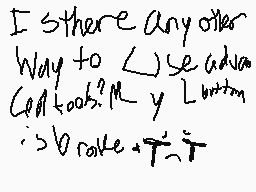 I sthere any other
Way to Use advan
ced tools? M y L button
is broke. T-T